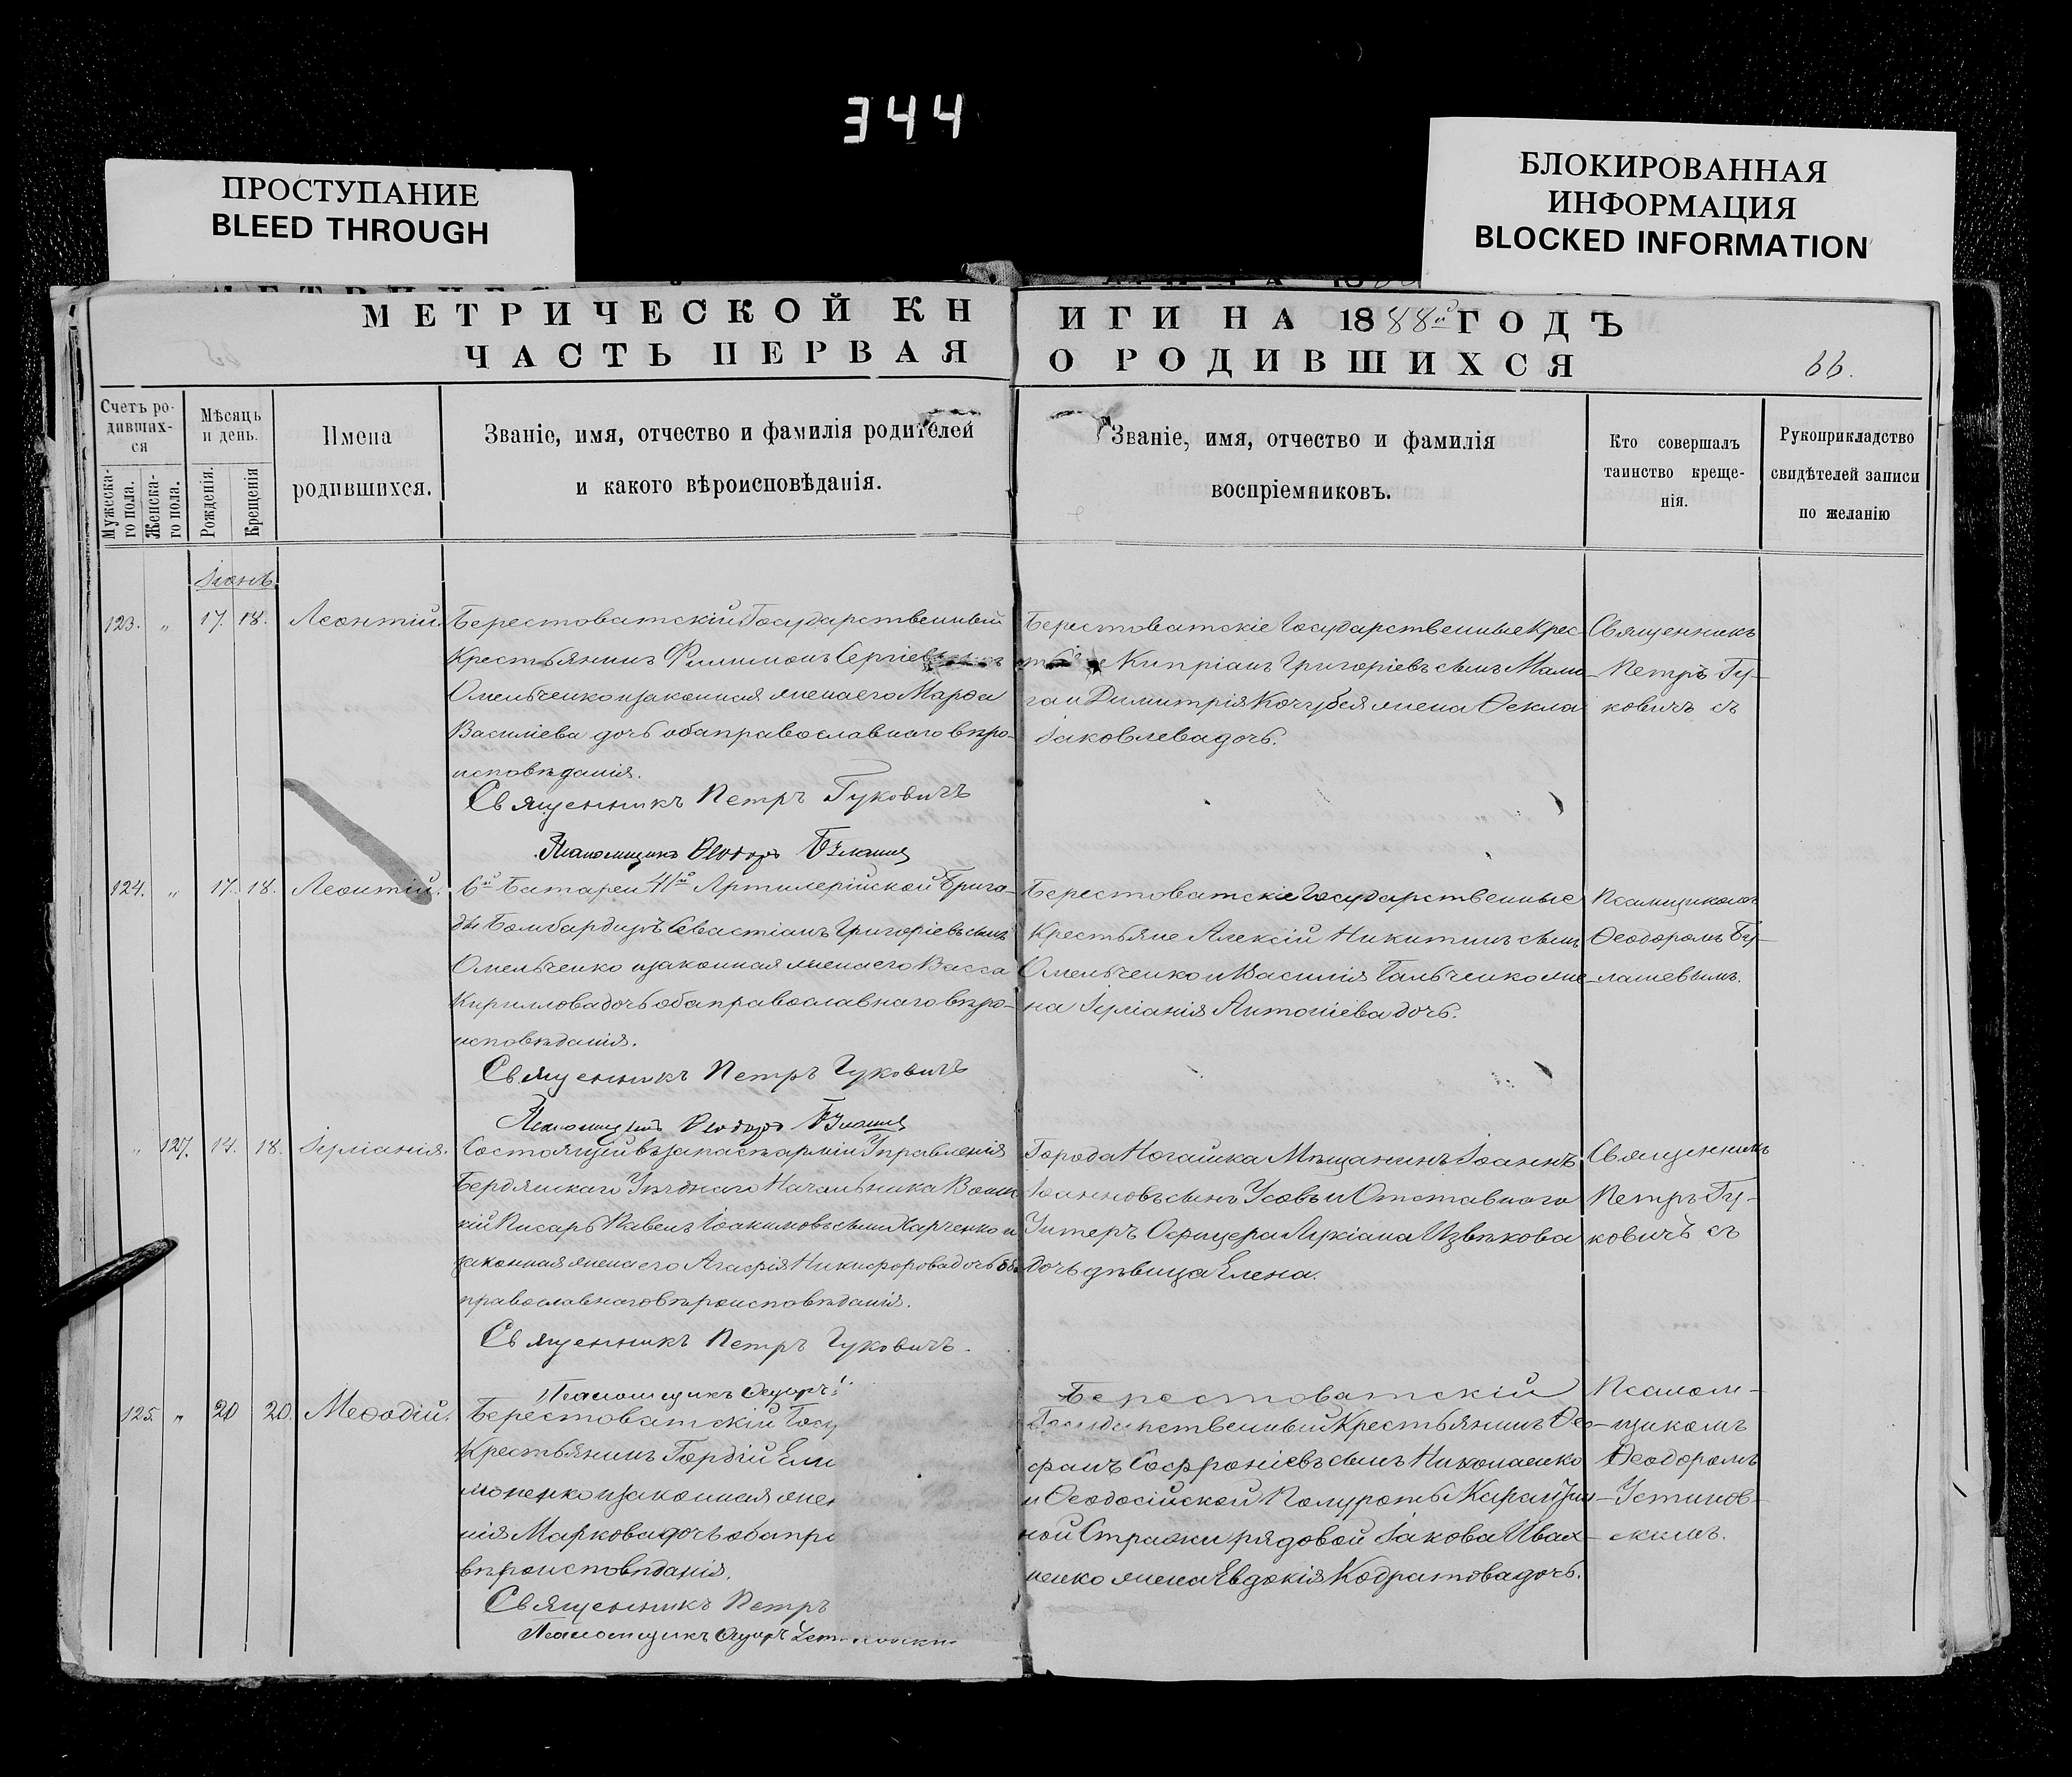 344
ПРОСТУПАНИЕ
BLEED THROUGH
БЛОКИРОВАННАЯ
ИНФОРМАЦИЯ
BLOCKED INFORMATION
МЕТРИЧЕСКОЙ КНИГИ НА 1888й ГОДЪ
ЧАСТЬ ПЕРВАЯ О РОДИВШИХСЯ
66.
Счетъ ро-
дившах-
ся
Мужеска-
го пола.
Женска-
го пола.
Мѣсяцъ
и день.
Рожденія.
Крещенія
Имена
родившихся.
Званіе, имя, отчество и фамилія родителей
и какого вѣроисповѣданія.
Званіе, имя, отчество и фамилія
воспріемниковъ.
Кто совершалъ
таинство креще-
нія.
Рукоприкладство
свидѣтелей записи
по желанію
Іюнь
123. " 17. 18. Леонтій.
Берестоватскій Государственный
Крестьянинъ Филимонъ Сергіевъ
Омельченко и законная жена его Марѳа
Василіева дочь оба православного вѣро-
исповѣданія.
Священникъ Петръ Гуковичъ
Псаломщикъ Ѳеодоръ
Берестоватскіе Государственные Крес-
Кипріанъ Григоріевъ сынъ Мами-
га и Димитрія Кочубея жена Ѳекла
Іаковлева дочь.
Священникъ
Петръ Гу-
ковичъ съ
124. " 17. 18. Леонтій.
6й Батареи 41й Артилерійской Брига-
ды Бомбардиръ Севастіанъ Григоріевъ сынъ
Омельченко и законная жена его Васса
Кириллова дочь оба православнаго вѣро-
исповѣданія.
Священникъ Петръ Гуковичъ
Псаломщикъ Ѳеодоръ
Берестоватскіе Государственные
Крестьяне Алексій Никитинъ сынъ
Омельченко и Василія Гальченко же-
на Іерміанія Антоніева дочь.
Псаломщикомъ
Ѳеодоромъ Бу-
лашевымъ.
" 127. 14. 18. Іерміанія.
Состоящій въ запасѣ арміи Управленія
Бердянскаго Уѣзднаго Начальника Воинс
кій Писарь Павелъ Іоакимовъ сынъ Харченко и
законная жена его Агафія Никифорова дочь оба
православнаго вѣроисповѣданія.
Священникъ Петръ Гуковичъ.
Псаломщикъ Ѳеодоръ
Города Ногайска Мѣщанинъ Іоаннъ
Іоанновъ сынъ Усовъ и Отставного
Унтеръ Офицера Лукіана Извѣкова
дочь дѣвица Елена.
Священникъ
Петръ Гу-
ковичъ съ
125. " 20 20. Меѳодій.
Берестоватскій Госу
Крестьянинъ Гордій Ели
моненко и законная жен
нія Маркова дочь оба пра
вѣроисповѣданія.
Священникъ Петръ
Псаломщикъ Ѳеодоръ
Берестоватскій
Государственный Крестьянинъ Ѳео-
фанъ Софроніевъ сынъ Николаенко
и Ѳеодосійской Полуроты Карантин-
ной Стражи рядовой Іакова Ивах-
ненко жена Евдокія Кодратова дочь.
Псалом-
щикомъ
Ѳеодоромъ
Устинов-
скимъ.